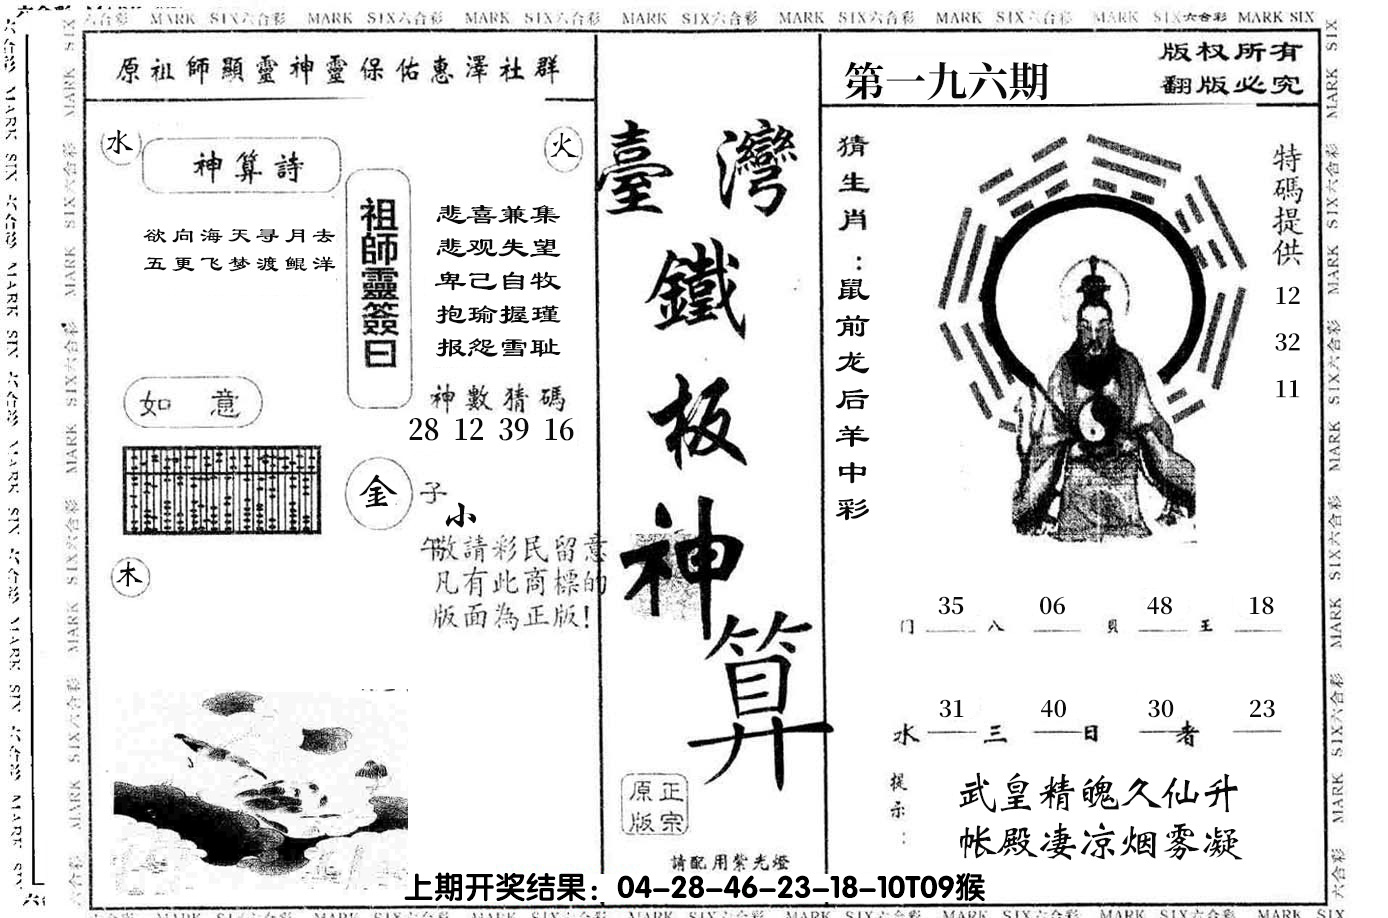 六合彩 MARK SIX六合彩 MARK SIX六合彩 MARK SIX六合彩 MARK SIX六合彩 MARK SIX六合彩 MARK SIX六合彩 MARK SIX六合彩 MARK SIX
原祖師顯靈神靈保佑惠澤社群
水
神算詩
火
欲向海天寻月去
五更飞梦渡鲲洋
祖師靈簽曰
悲喜兼集
悲观失望
卑己自牧
抱瑜握瑾
报怨雪耻
神數猜碼
28 12 39 16
如 意
金
子
小
午
木
敬請彩民留意
凡有此商標的
版面為正版!
臺灣
鐵
板
神
算
正宗
原版
請配用紫光燈
第一九六期
版权所有
翻版必究
猜生肖:鼠前龙后羊中彩
特碼提供
12
32
11
35 06 48 18
门 八 貝 王
31 40 30 23
水 三 日 者
提示:
武皇精魄久仙升
帐殿凄凉烟雾凝
上期开奖结果：04-28-46-23-18-10T09猴